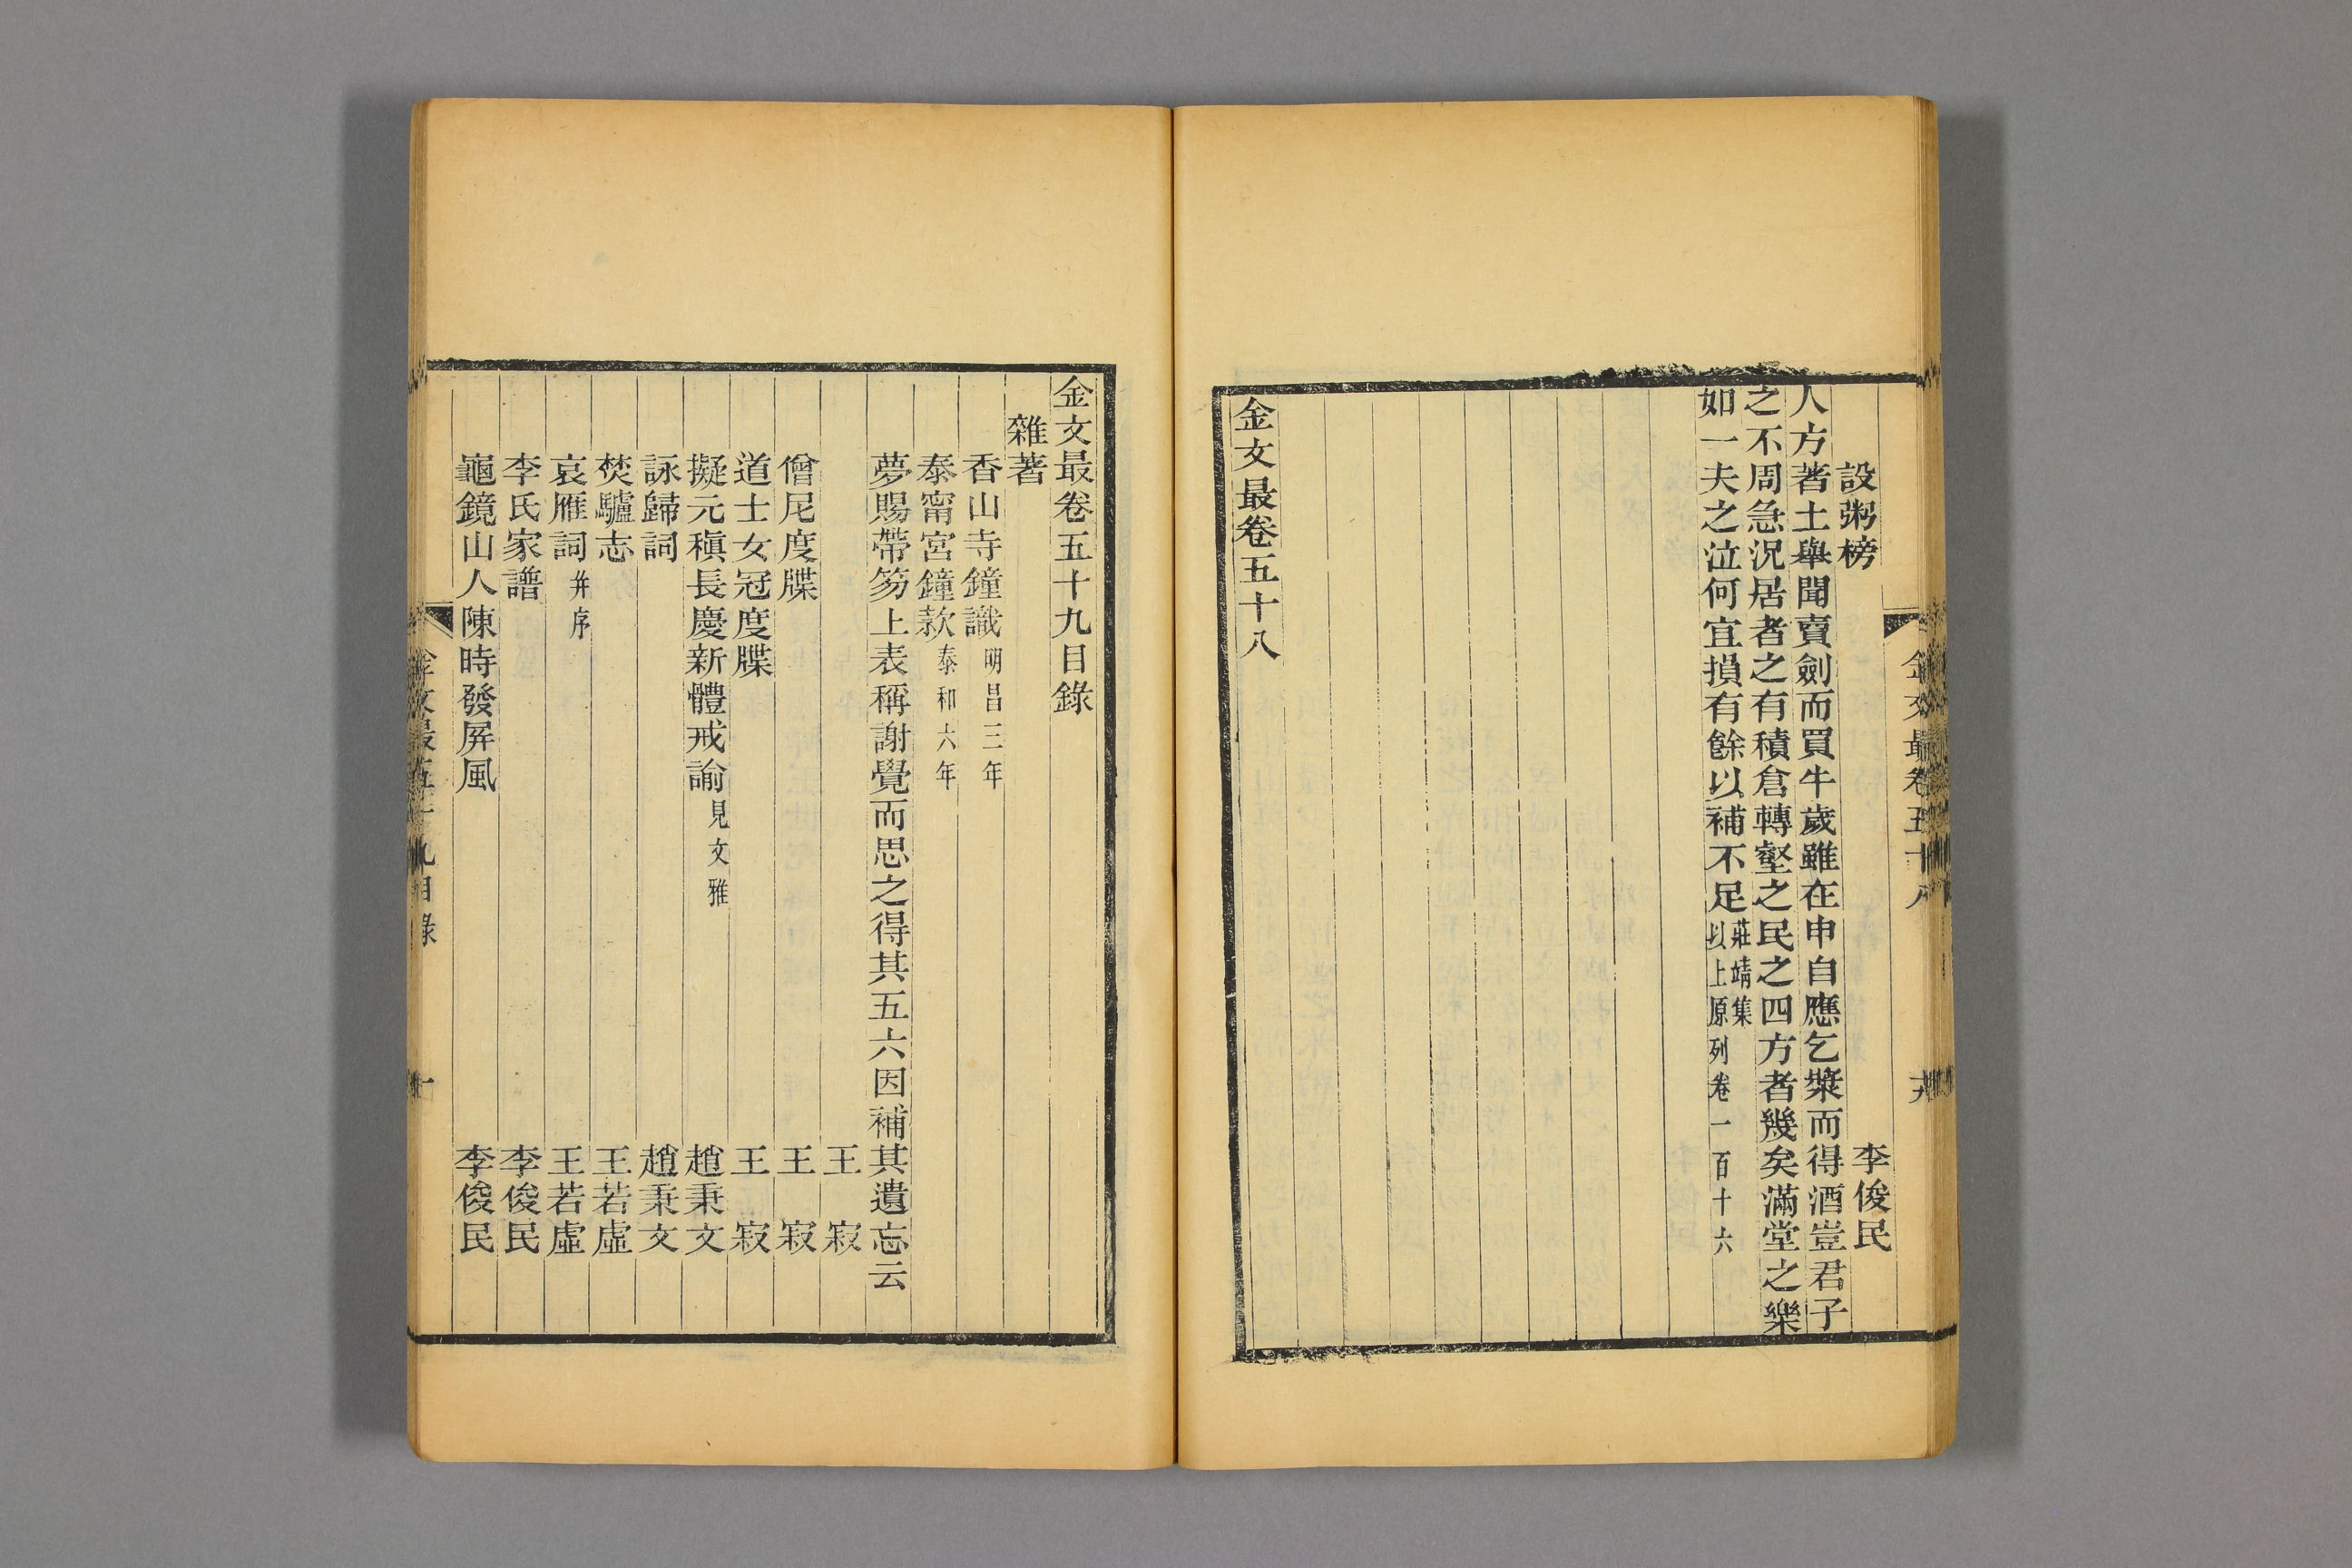 設粥榜　李俊民
人方著土舉聞賣劍而買牛歲雖在申自應乞漿而得酒豈君子
之不周急況居者之有積倉轉壑之民之四方者幾矣滿堂之樂
如一夫之泣何宜損有餘以補不足莊靖集
以上原列卷一百十六
金文最卷五十八
金文最卷五十八
金文最卷五十九目錄
雜著
香山寺鐘識明昌三年
泰甯宮鐘款泰和六年
夢賜帶笏上表稱謝覺而思之得其五六因補其遺忘云
王寂
僧尼度牒　王寂
道士女冠度牒　王寂
擬元稹長慶新體戒諭見文雅　趙秉文
詠歸詞　趙秉文
焚驢志　王若虛
哀雁詞并序　王若虛
李氏家譜　李俊民
龜鏡山人陳時發屏風　李俊民
金文最卷五十九目錄